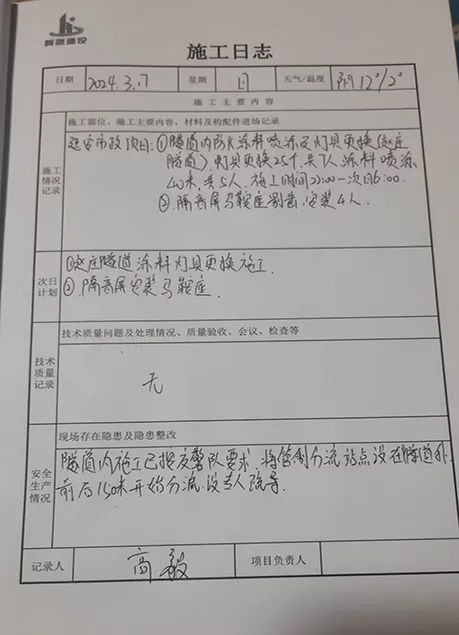 施工日志
日期 2024.3.7 星期 日 天气/温度 阴12°/2°
施工主要内容
施工部位、施工主要内容，材料及构配件进场记录
施工情况记录
延安市政项目：①隧道内防火涂料喷涂及灯具更换（赵庄
隧道）灯具更换25个，共7人，涂料喷涂
40米，共5人，施工时间22:00—次日6:00.
②隔离屏马鞍座割凿，安装4人.
次日计划
①赵庄隧道涂料灯具更换施工.
②隔离屏安装马鞍座.
技术质量问题及处理情况、质量验收、会议、检查等
技术质量记录
无
现场存在隐患及隐患整改
安全生产情况
隧道内施工已按交警队要求，将管制分流站点设在隧道外
前后150米开始分流，设专人疏导.
记录人 高毅 项目负责人